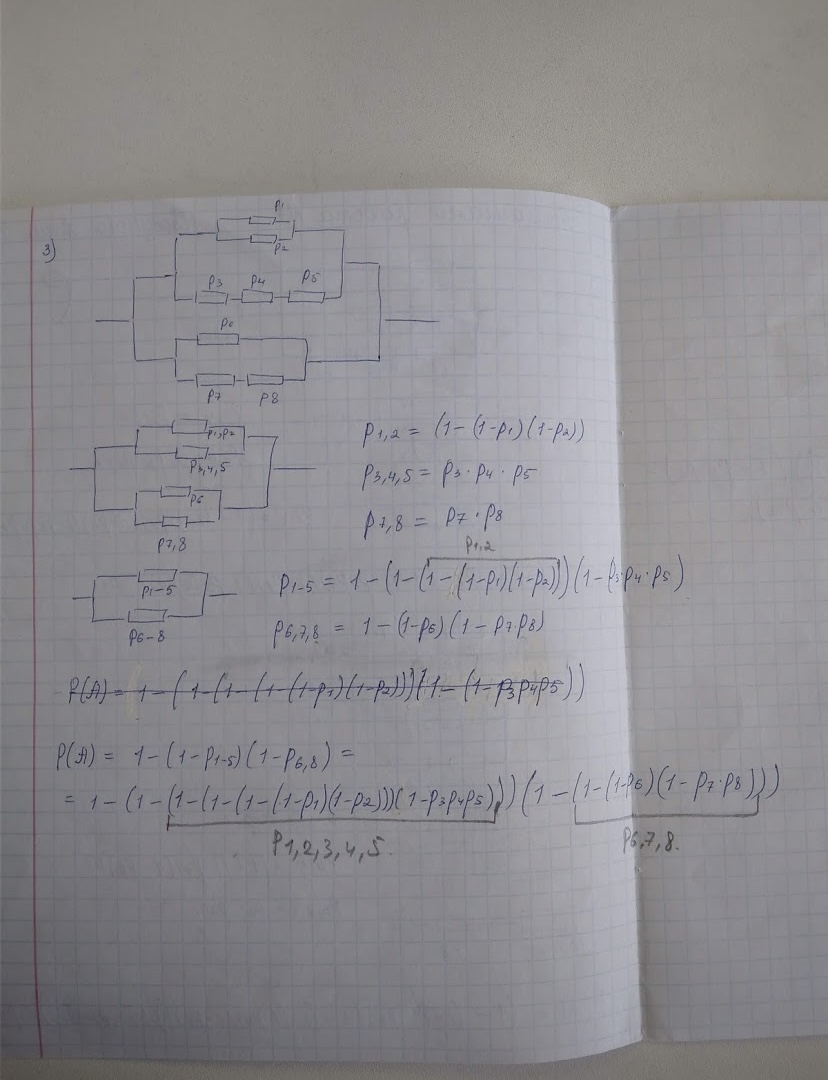 3)
p1
p2
p3 p4 p5
p6
p7 p8
p1,p2
p3,4,5
p6
p7,8
p1,2 = (1-(1-p1)(1-p2))
p3,4,5 = p3 · p4 · p5
p7,8 = p7 · p8
p1,2
p1-5
p6-8
p1-5 = 1-(1-(1-(1-p1)(1-p2)))(1-p3·p4·p5)
p6,7,8 = 1-(1-p6)(1-p7·p8)
P(A) = 1-(1-(1-(1-(1-p1)(1-p2)))(1-(1-p3p4p5))
P(A) = 1-(1-p1-5)(1-p6,8) =
= 1-(1-(1-(1-(1-(1-p1)(1-p2)))(1-p3p4p5)))(1-(1-(1-p6)(1-p7·p8)))
p1,2,3,4,5.
p6,7,8.